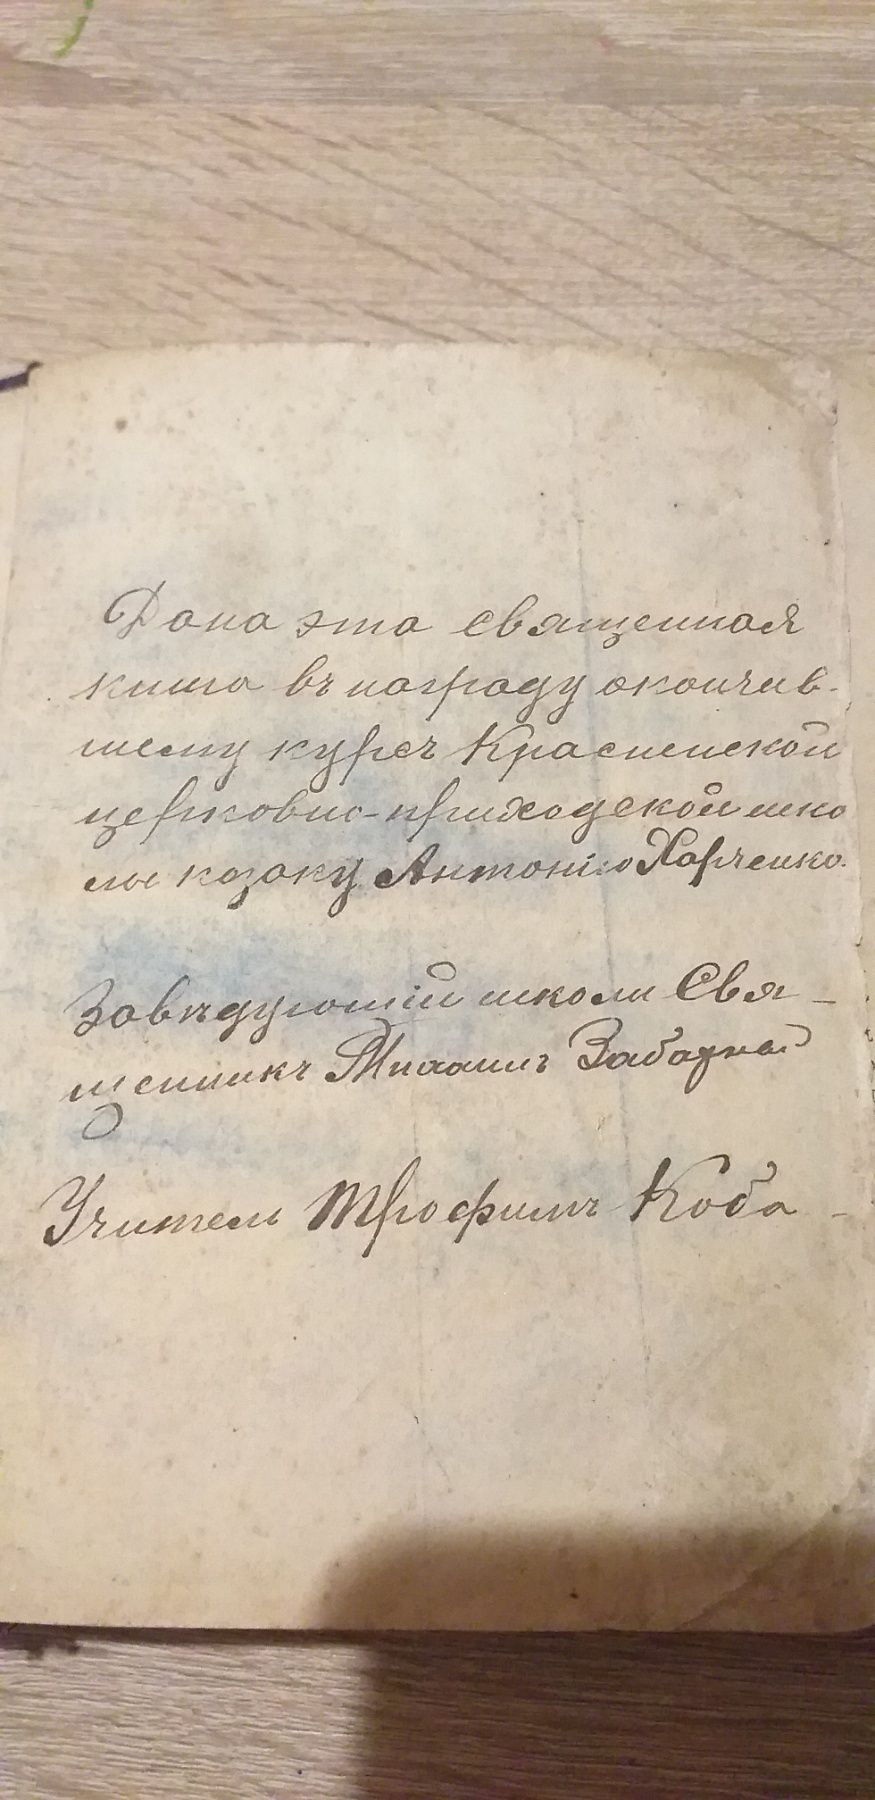 Дана эта священная
книга въ награду окончив-
шему курсъ Красненской
церковно-приходской шко
лы козаку Антонію Харченко.
Завѣдующій школи Свя-
щенникъ Михаилъ
Учитель Трофимъ Коба